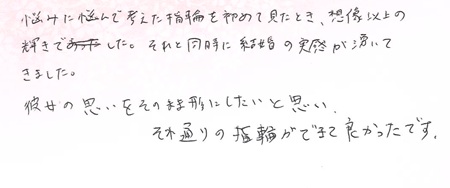 悩みに悩んで考えた指輪を初めて見たとき、想像以上の
輝きでした。それと同時に結婚の実感が湧いて
きました。
彼女の思いをそのまま形にしたいと思い、
それ通りの指輪ができて良かったです。